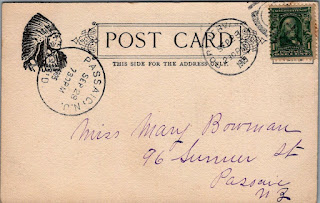 POST CARD
THIS SIDE FOR THE ADDRESS ONLY.
PASSAIC, N.J.
SEP 28
7 30 PM
Miss Mary Bowman
96 Sumner St
Passaic
N J